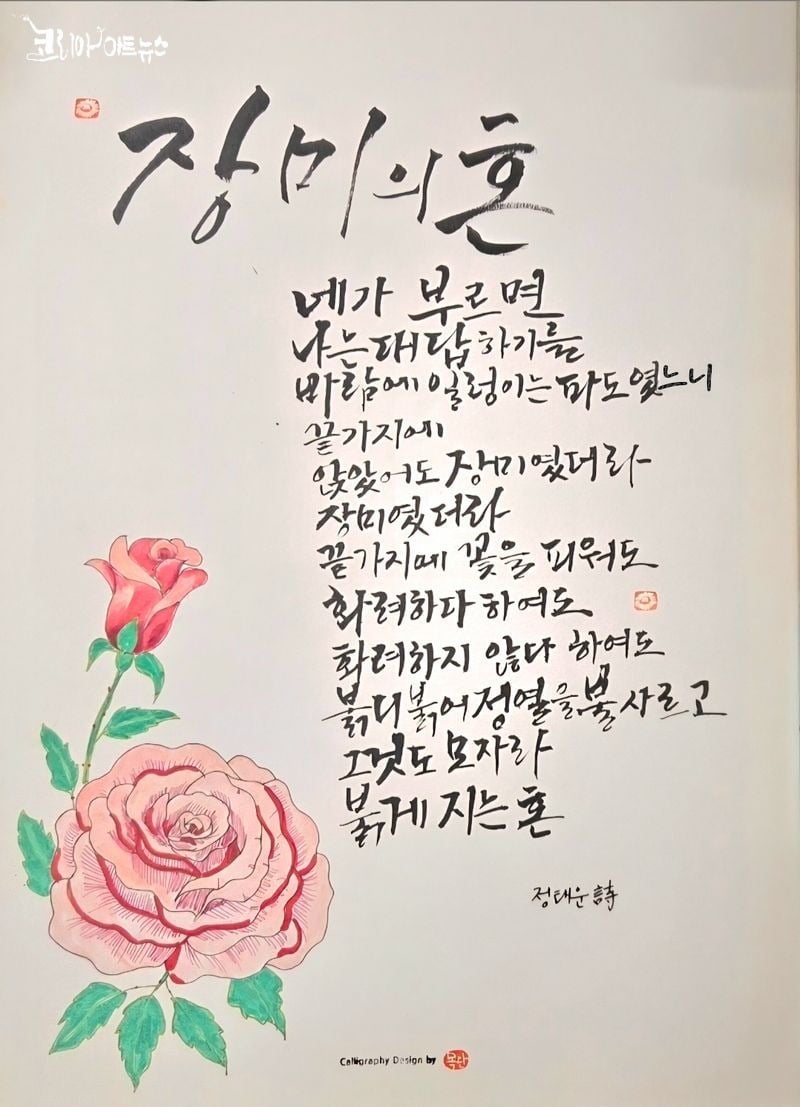 코리아아트뉴스
장미의 혼
네가 부르면
나는 대답하기를
바람에 일렁이는 파도였느니
끝가지에
앉았어도 장미였더라
장미였더라
끝가지에 꽃을 피워도
화려하다 하여도
화려하지 않다 하여도
붉디붉어 정열을 불사르고
그것도 모자라
붉게 지는 혼
정태운 詩
Calligraphy Design by 목단